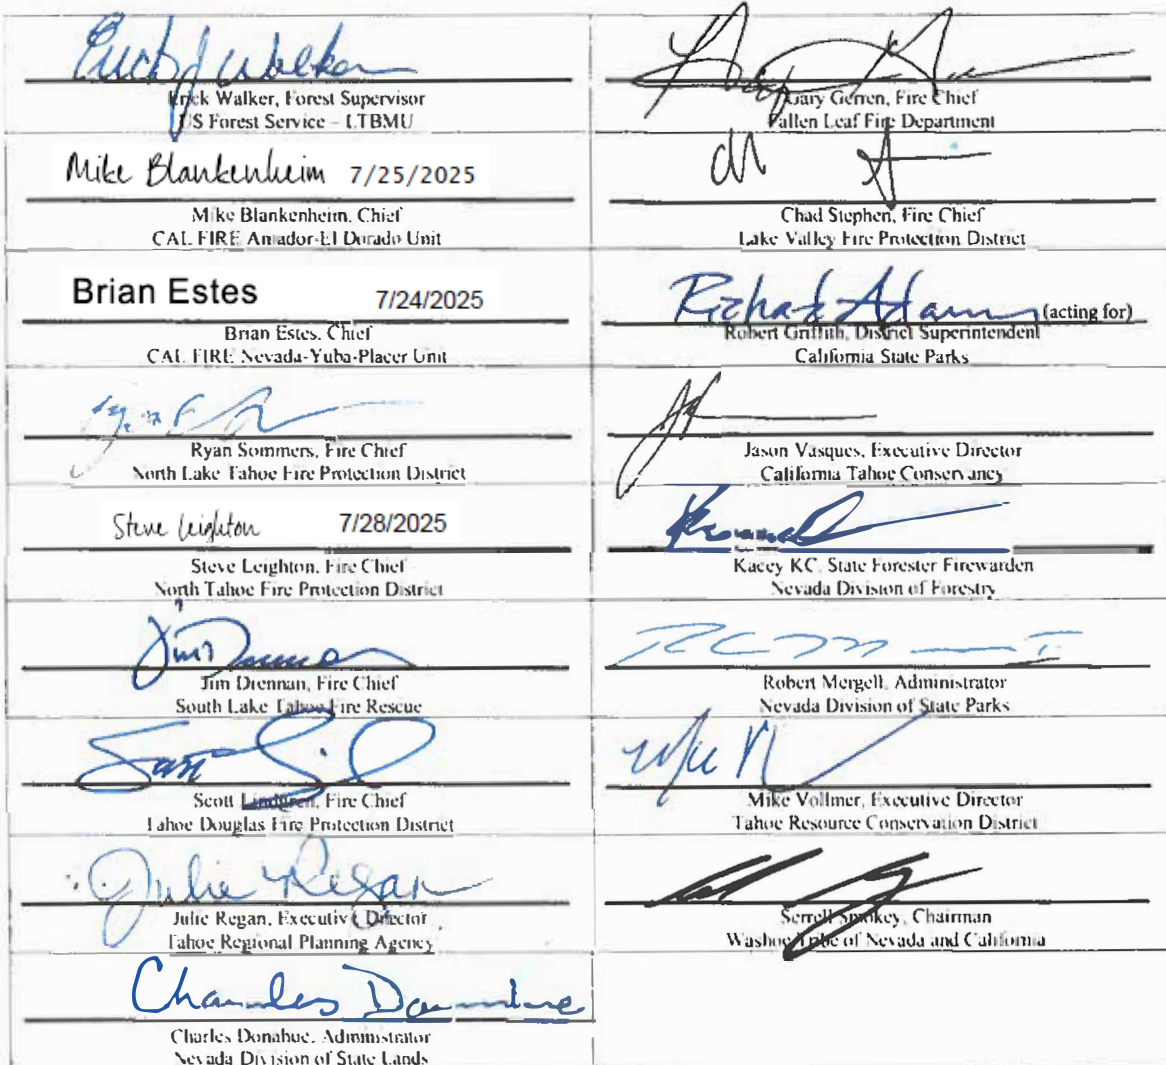 Erick J Walker
Erick Walker, Forest Supervisor
US Forest Service – LTBMU
Mike Blankenheim 7/25/2025
Mike Blankenheim, Chief
CAL FIRE Amador-El Dorado Unit
Brian Estes 7/24/2025
Brian Estes, Chief
CAL FIRE Nevada-Yuba-Placer Unit
Ryan Sommers, Fire Chief
North Lake Tahoe Fire Protection District
Steve Leighton 7/28/2025
Steve Leighton, Fire Chief
North Tahoe Fire Protection District
Jim Drennan
Jim Drennan, Fire Chief
South Lake Tahoe Fire Rescue
Scott Lindgren, Fire Chief
Tahoe Douglas Fire Protection District
Julie Regan
Julie Regan, Executive Director
Tahoe Regional Planning Agency
Charles Donahue
Charles Donahue, Administrator
Nevada Division of State Lands
Gary Gerren, Fire Chief
Fallen Leaf Fire Department
Chad Stephen, Fire Chief
Lake Valley Fire Protection District
Richard Adams (acting for)
Robert Griffith, District Superintendent
California State Parks
Jason Vasques, Executive Director
California Tahoe Conservancy
Kacey KC, State Forester Firewarden
Nevada Division of Forestry
Robert Mergell, Administrator
Nevada Division of State Parks
Mike Vollmer, Executive Director
Tahoe Resource Conservation District
Serrell Smokey, Chairman
Washoe Tribe of Nevada and California